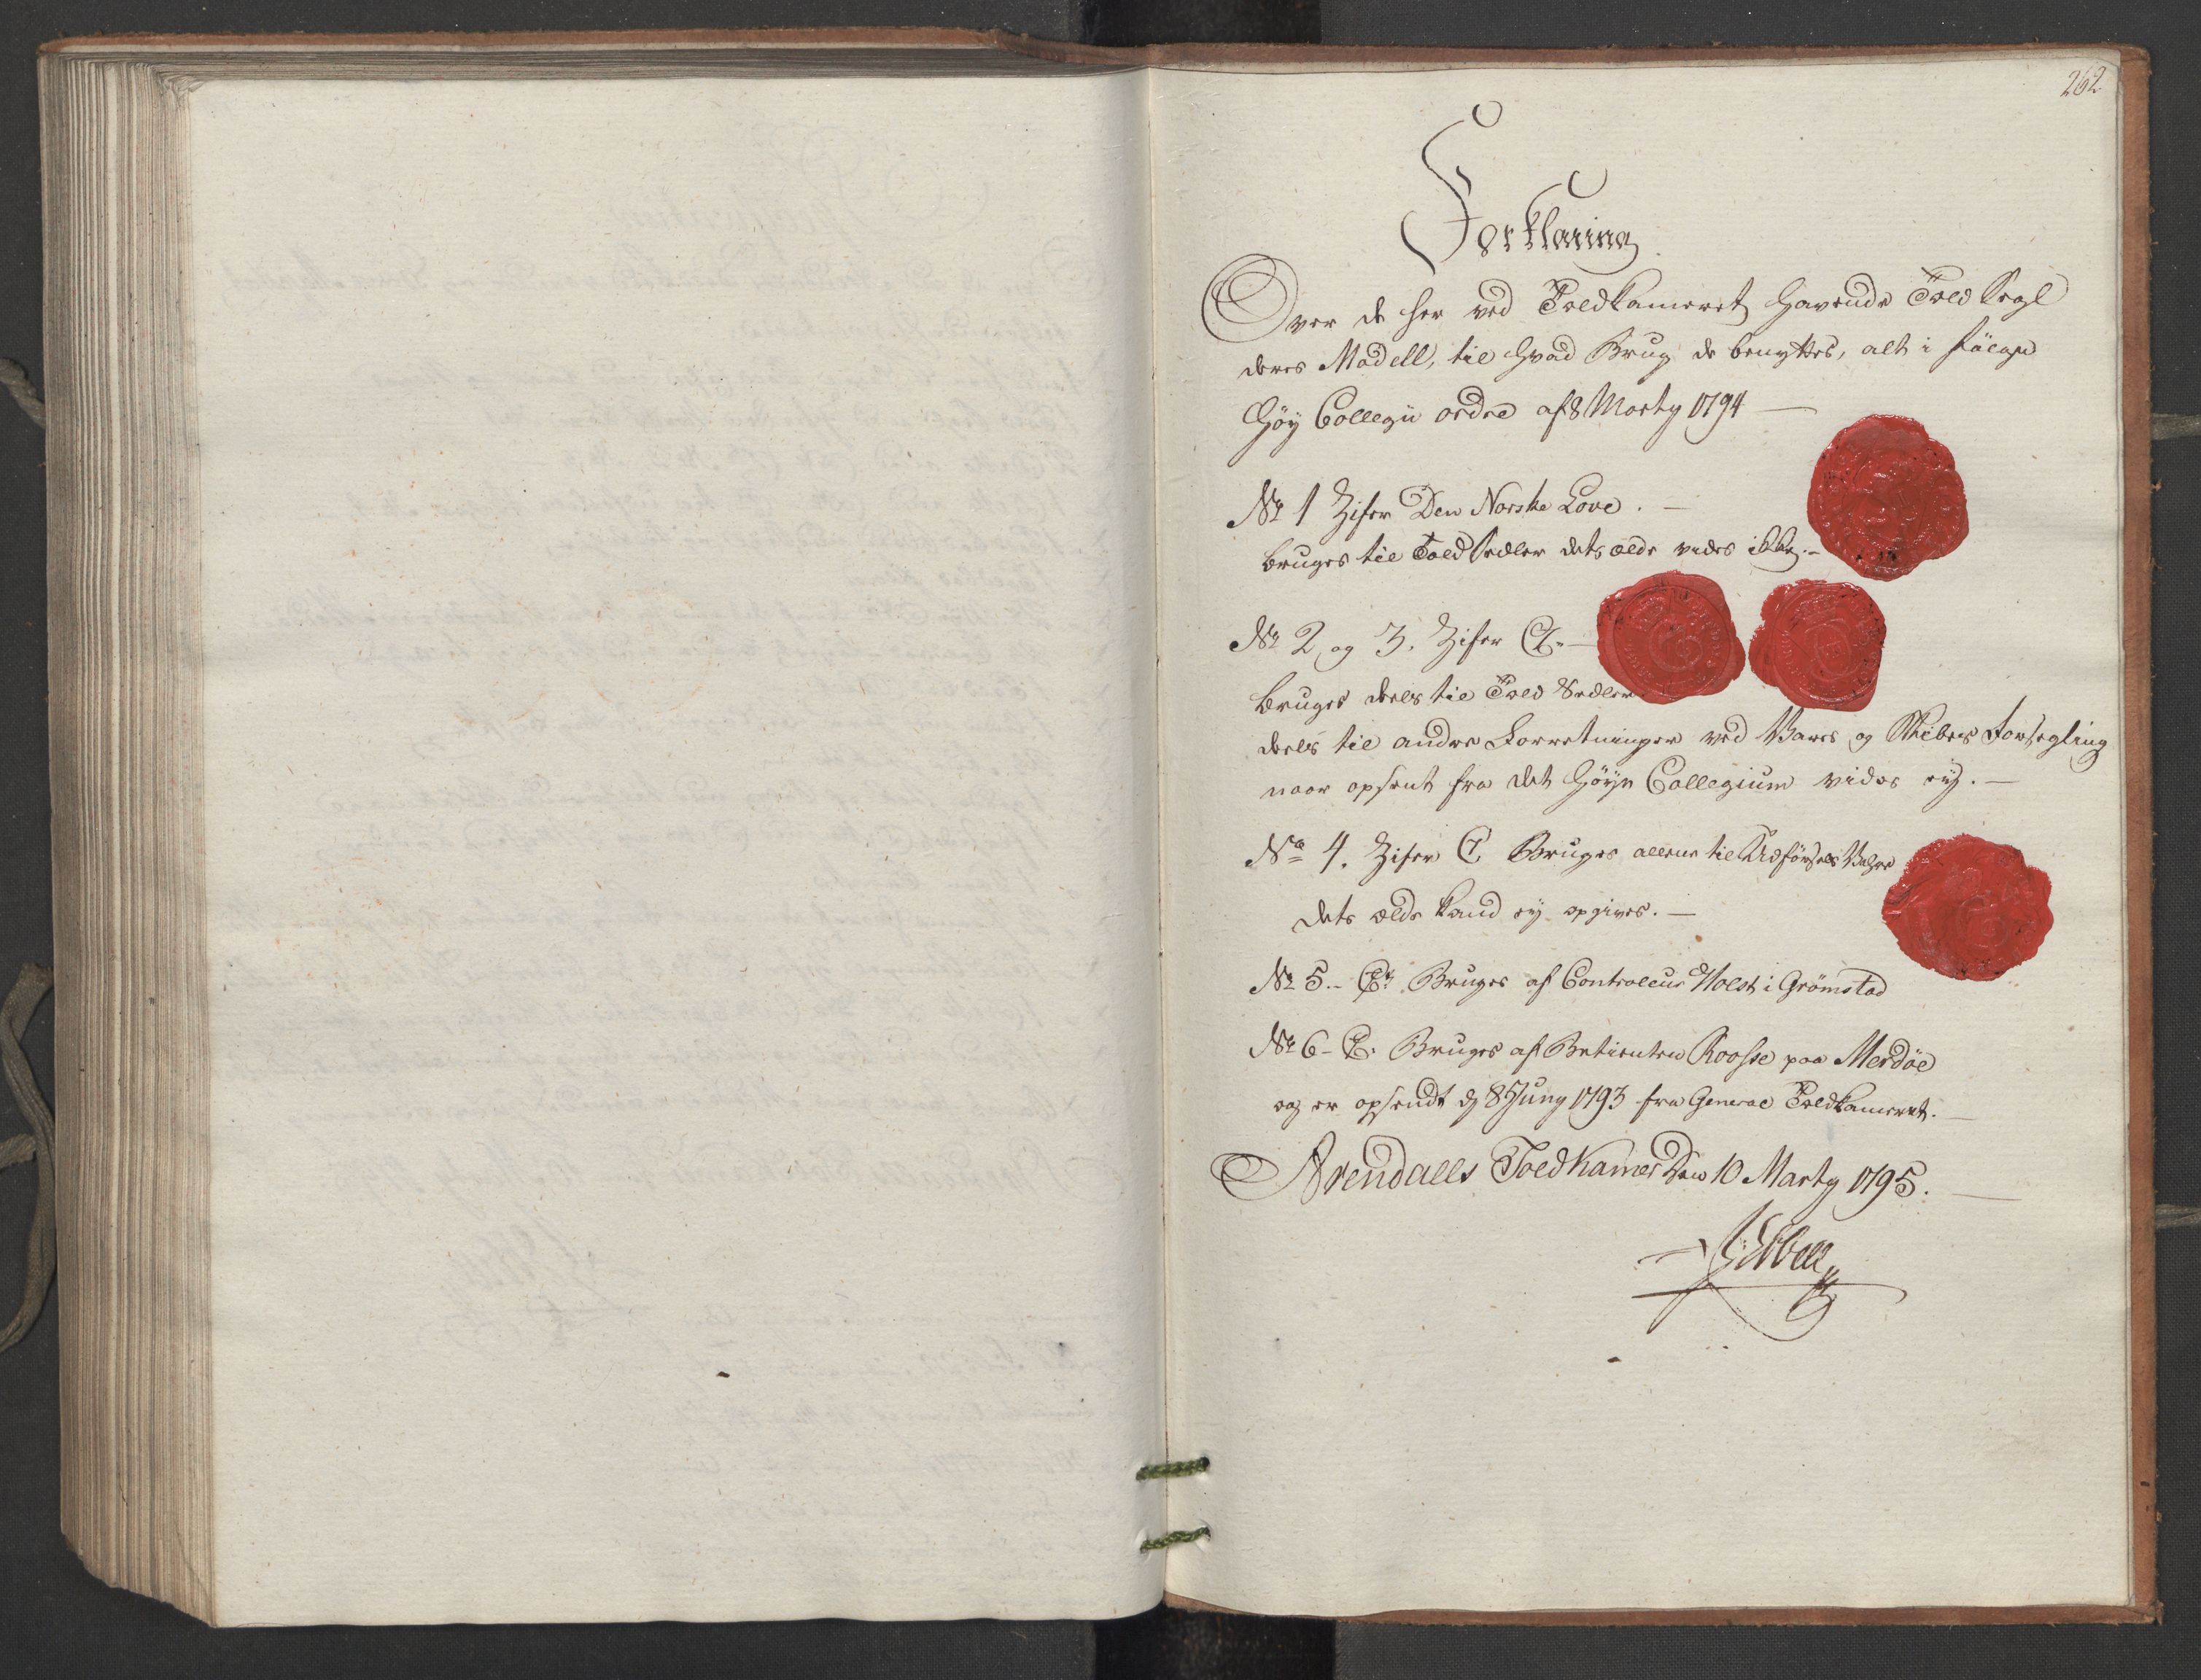 262
Forklaring
Over de her ved Toldkameret havende Told Segl
deres Modell, til hvad Brug de benyttes, alt i følge
Høy Collegii ordre af 8 Marty 1794
No 1 Zifer Den Norske Løve.
bruges til Told Sedler dets ælde vides ikke.
No 2 og 3. Zifer
bruges deels til Told Sedler
deels til andre Forretninger ved Vares og Skibes Forsegling
naar opsent fra det høye Collegium vides ey.
No 4. Zifer C7 Bruges allene til Udførsels
dets ælde kand ey opgives.
No 5. Bruges af Controleur Holst i Grømstad
No 6 Bruges af Betienten Roosse paa Merdøe
og er opsendt d 8 Juny 1793 fra General Toldkameret.
Arendalls Toldkamer Den 10 Marty 1795.
Ebbell